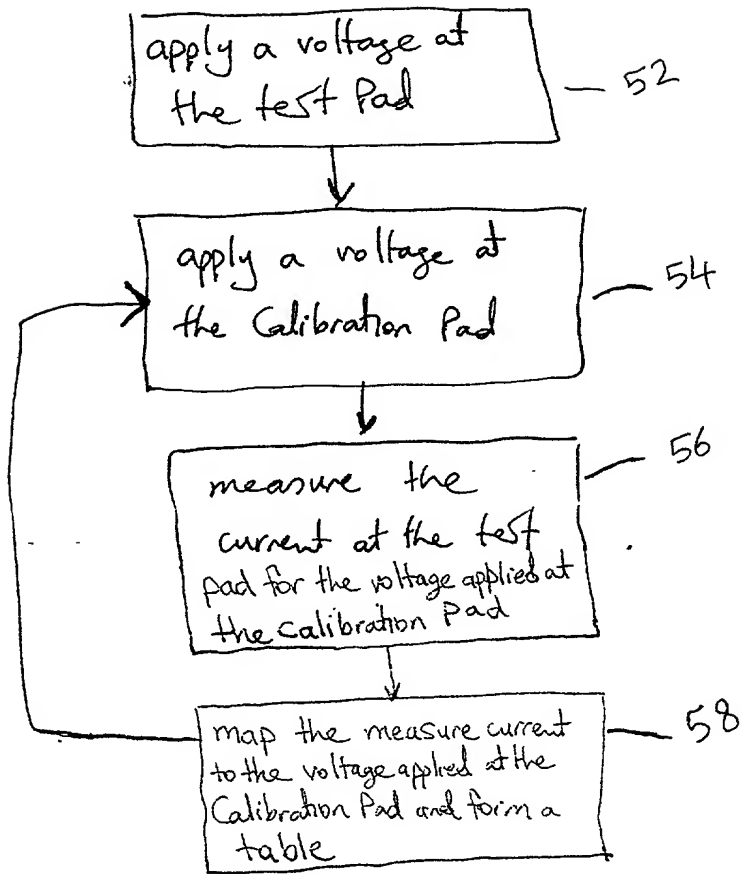 apply a voltage at
the test Pad
52
apply a voltage at
the Calibration Pad
54
measure the
current at the test
pad for the voltage applied at
the Calibration Pad
56
map the measure current
to the voltage applied at the
Calibration Pad and form a
table
58